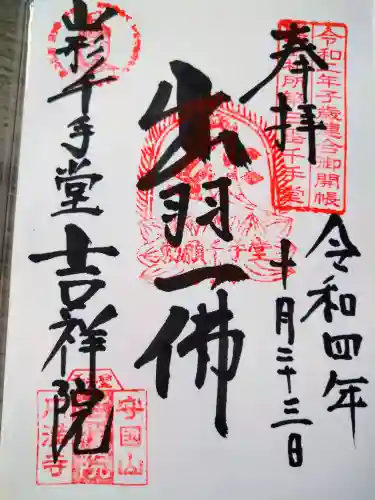 奉拝
令和二年子歳連合御開帳
令和四年
十月二十三日
出羽一佛
千手堂
山形千手堂吉祥院
守国山